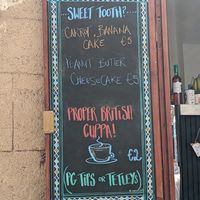 SWEET TOOTH?....
CARROT, BANANA
CAKE €5
PEANUT BUTTER
CHEESECAKE €5
PROPER BRITISH
CUPPA!
€2
(PG TIPS OR TETLEYS)